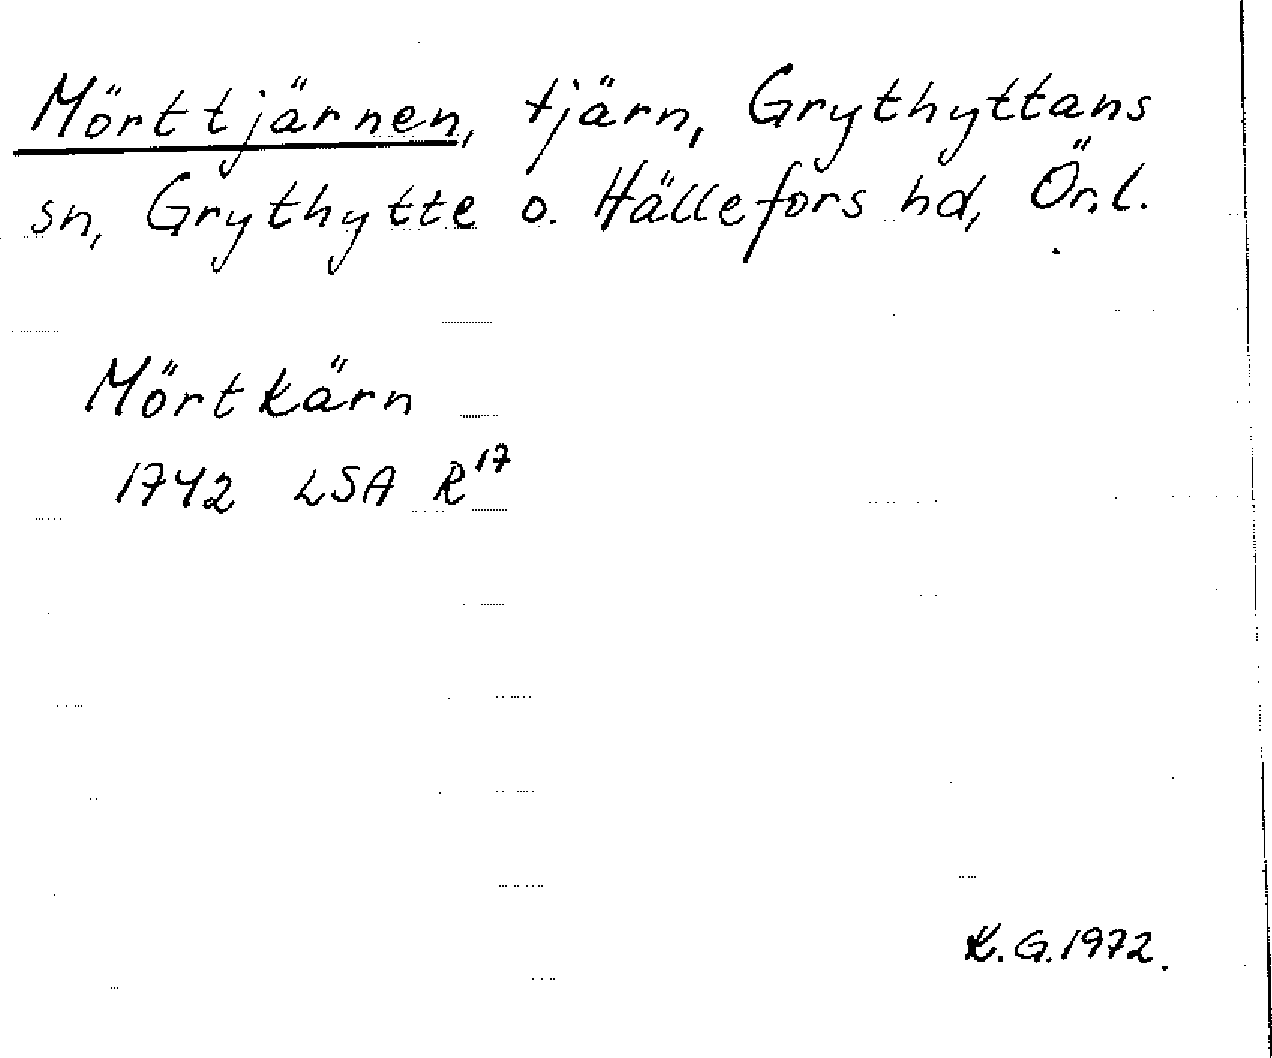 Mörttjärnen, tjärn, Grythyttans
sn, Grythytte o. Hällefors hd, Ör.l.
Mörtkärn
1742 LSA R17
K.G.1972.